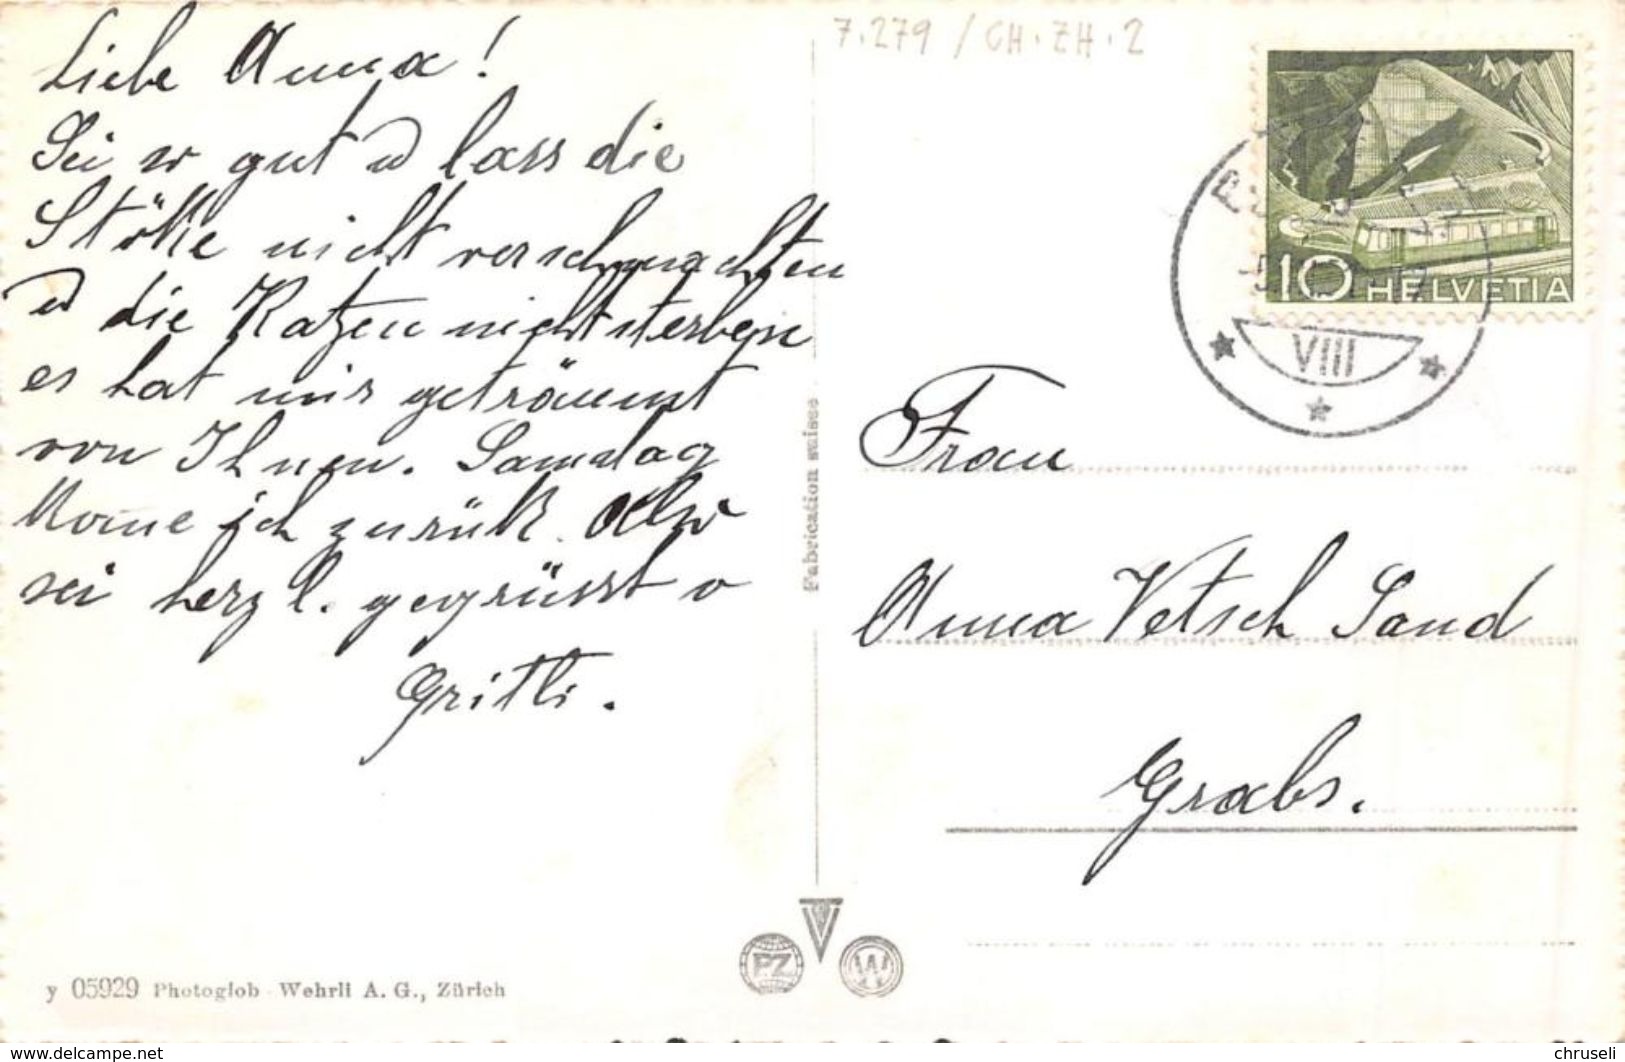 7.279 / CH.ZH.2
Liebe Anna!
Sei so gut u lass die
Stöcke nicht verschmachten
u die Katzen nicht sterben
es hat mir geträumt
von Ihnen. Samstag
komme ich zurük. Also
sei herzl. gegrüsst v
Gritli.
10 HELVETIA
VIII
Frau
Anna Vetsch Sand
Grabs.
Fabrication suisse
PZ
W
y 05929 Photoglob-Wehrli A. G., Zürich
www.delcampe.net
chruseli